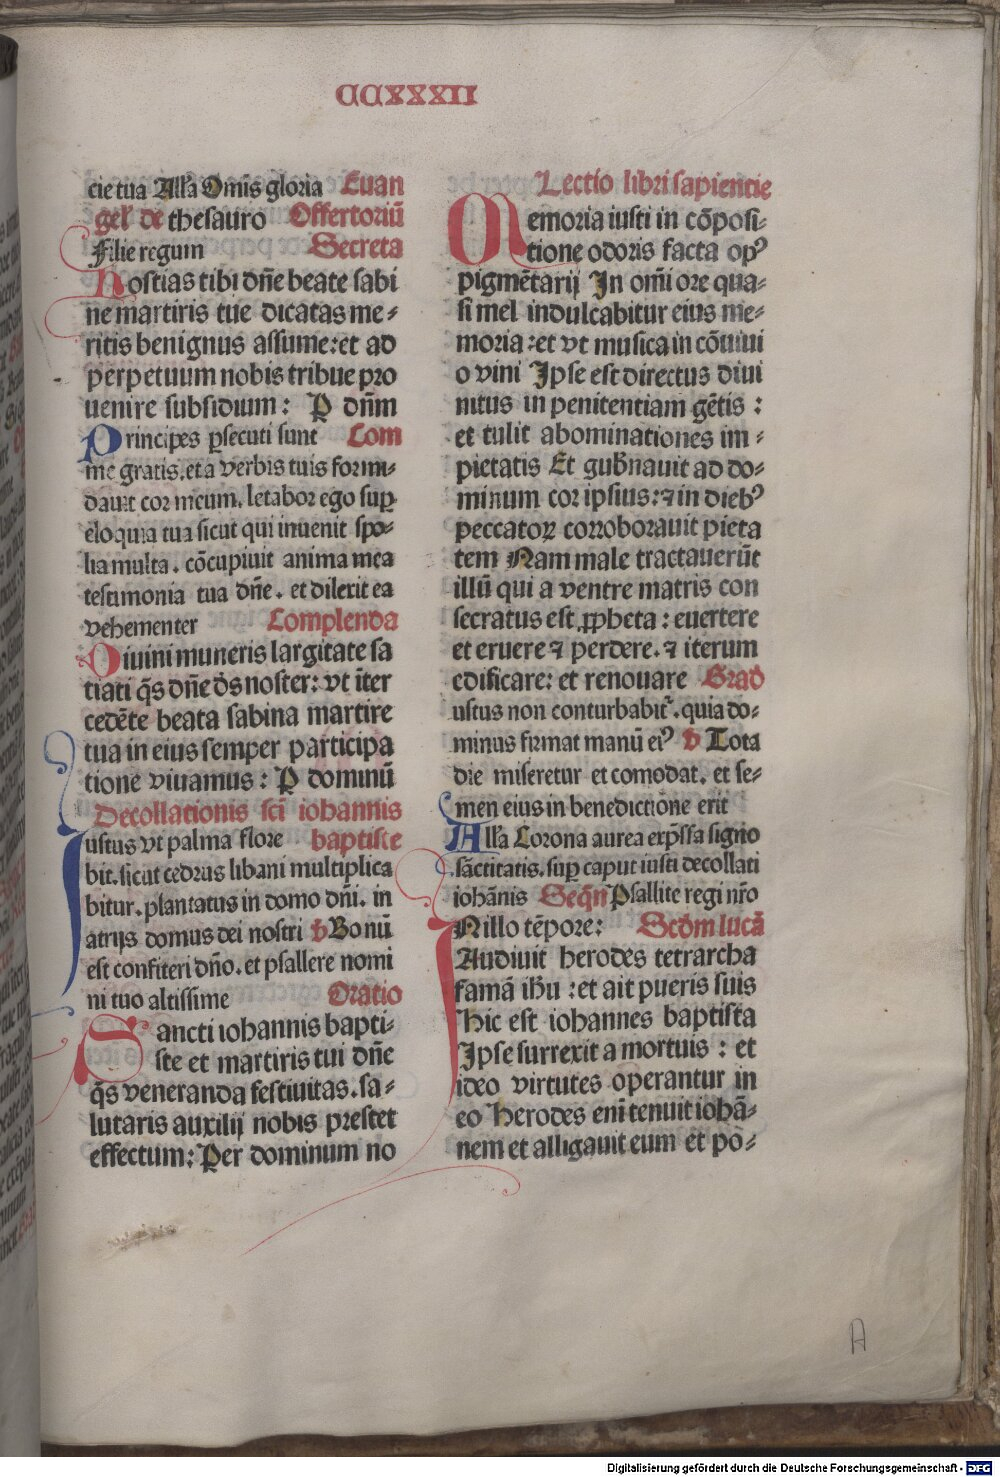 CCXXXII
cie tua Alľa Om̄is gloria Euan
gel' de thesauro Offertoriū
Filie regum Secreta
Hostias tibi dn̄e beate sabi
ne martiris tue dicatas me-
ritis benignus assume: et ad
perpetuum nobis tribue pro
uenire subsidium: P dn̄m
Principes ꝑsecuti sunt Com
me gratis. et a verbis tuis formi-
dauit cor meum. letabor ego suꝑ
eloquia tua sicut qui inuenit spo-
lia multa. cōcupiuit anima mea
testimonia tua dn̄e. et dilexit ea
vehementer Complenda
Diuini muneris largitate sa
tiati q̄s dn̄e d̄s noster: vt īter
cedēte beata sabina martire
tua in eius semper participa
tione viuamus: P dominū
Decollationis sc̄i iohannis
Iustus vt palma flore baptiste
bit. sicut cedrus libani multiplica
bitur. plantatus in domo dn̄i. in
atrijs domus dei nostri v̄ Bonū
est confiteri dn̄o. et psallere nomi
ni tuo altissime Oratio
Sancti iohannis bapti-
ste et martiris tui dn̄e
q̄s veneranda festiuitas. sa-
lutaris auxilij nobis prestet
effectum: Per dominum no
Lectio libri sapientie
Memoria iusti in cōposi-
tione odoris facta opꝰ
pigmētarij In om̄i ore qua-
si mel indulcabitur eius me-
moria: et vt musica in cōuiui
o vini Ipse est directus diui
nitus in penitentiam gētis:
et tulit abominationes im-
pietatis Et gub̄nauit ad do-
minum cor ipsius: ⁊ in diebꝰ
peccatoꝝ corroborauit pieta
tem Nam male tractauerūt
illū qui a ventre matris con
secratus est ꝓpheta: euertere
et eruere ⁊ perdere. ⁊ iterum
edificare: et renouare Grad̄
ustus non conturbabit᷑. quia do-
minus firmat manū eiꝰ v̄ Tota
die miseretur et comodat. et se-
men eius in benedictione erit
Alľa Corona aurea exp̄ssa signo
sāctitatis. suꝑ caput iusti decollati
iohānis Seqn̄ Psallite regi nr̄o
INillo tēpore: Scd̄m lucā
Audiuit herodes tetrarcha
famā ih̄u: et ait pueris suis
Hic est iohannes baptista
Ipse surrexit a mortuis: et
ideo virtutes operantur in
eo Herodes eni᷑ tenuit iohā-
nem et alligauit eum et po-
A
Digitalisierung gefördert durch die Deutsche Forschungsgemeinschaft - DFG